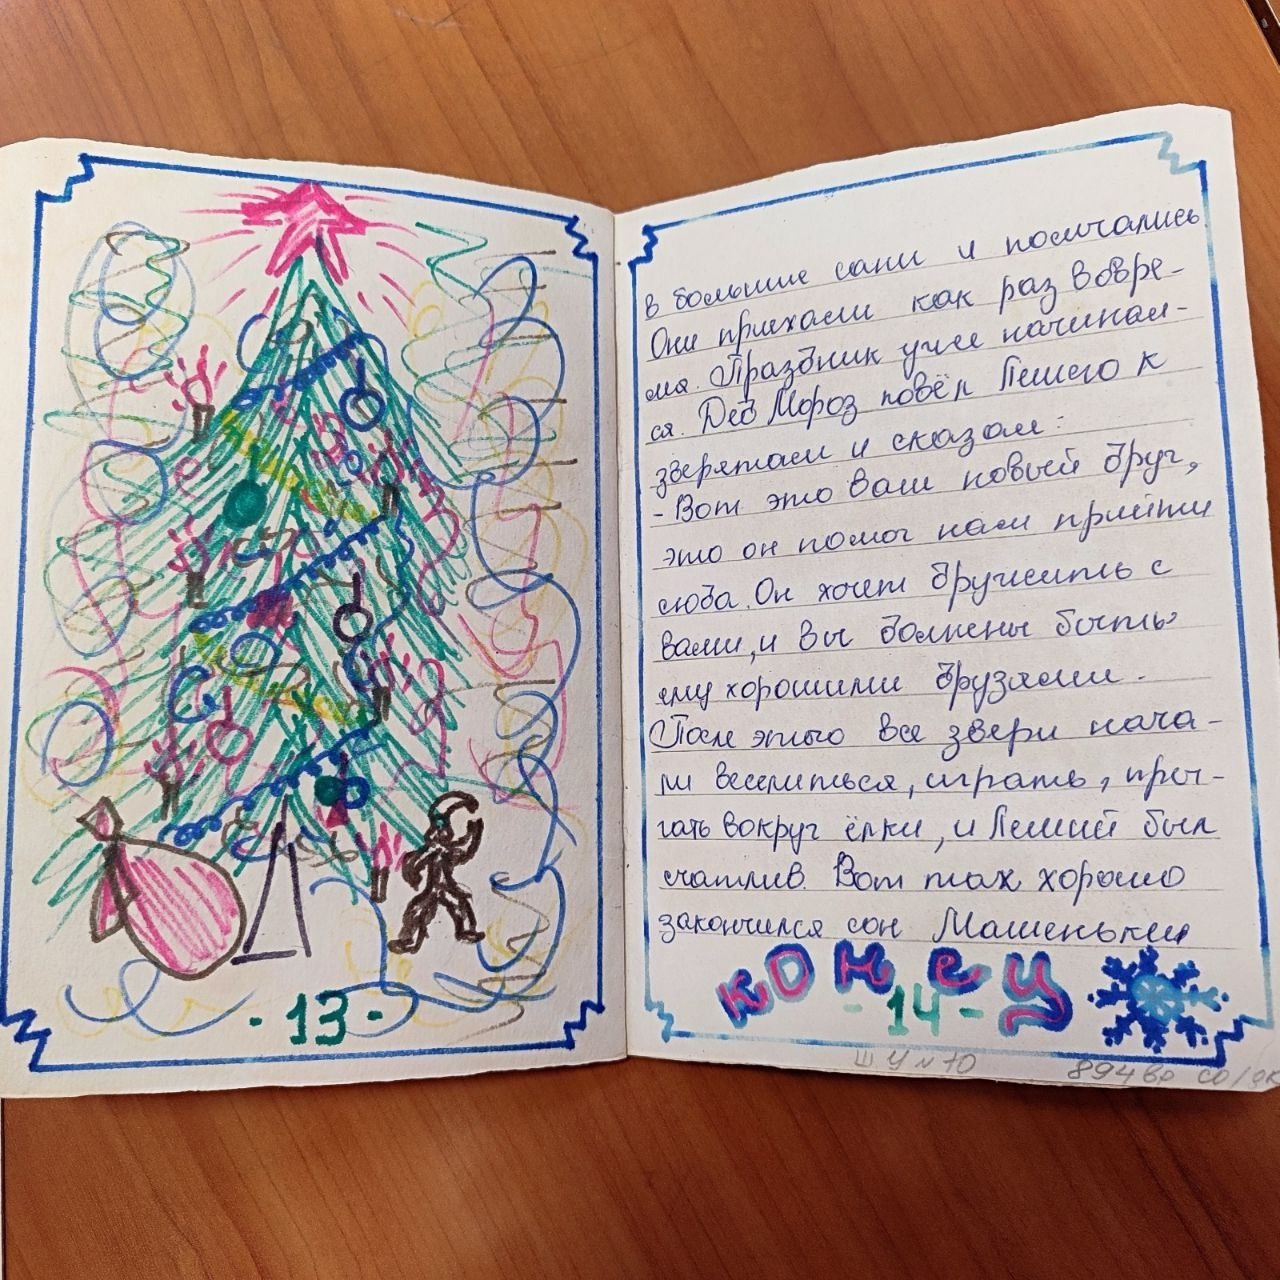 - 13 -
в большие сани и помчались
Они приехали как раз вовре-
мя. Праздник уже начинал-
ся. Дед Мороз повёл Лешего к
зверятам и сказал:
- Вот это ваш новый друг,
это он помог нам прийти
сюда. Он хочет дружить с
вами, и вы должны быть
ему хорошими друзьями.
После этого все звери нача-
ли веселиться, играть, пры-
гать вокруг ёлки, и Леший был
счатлив. Вот так хорошо
закончился сон Машеньки
КОНЕЦ
- 14 -